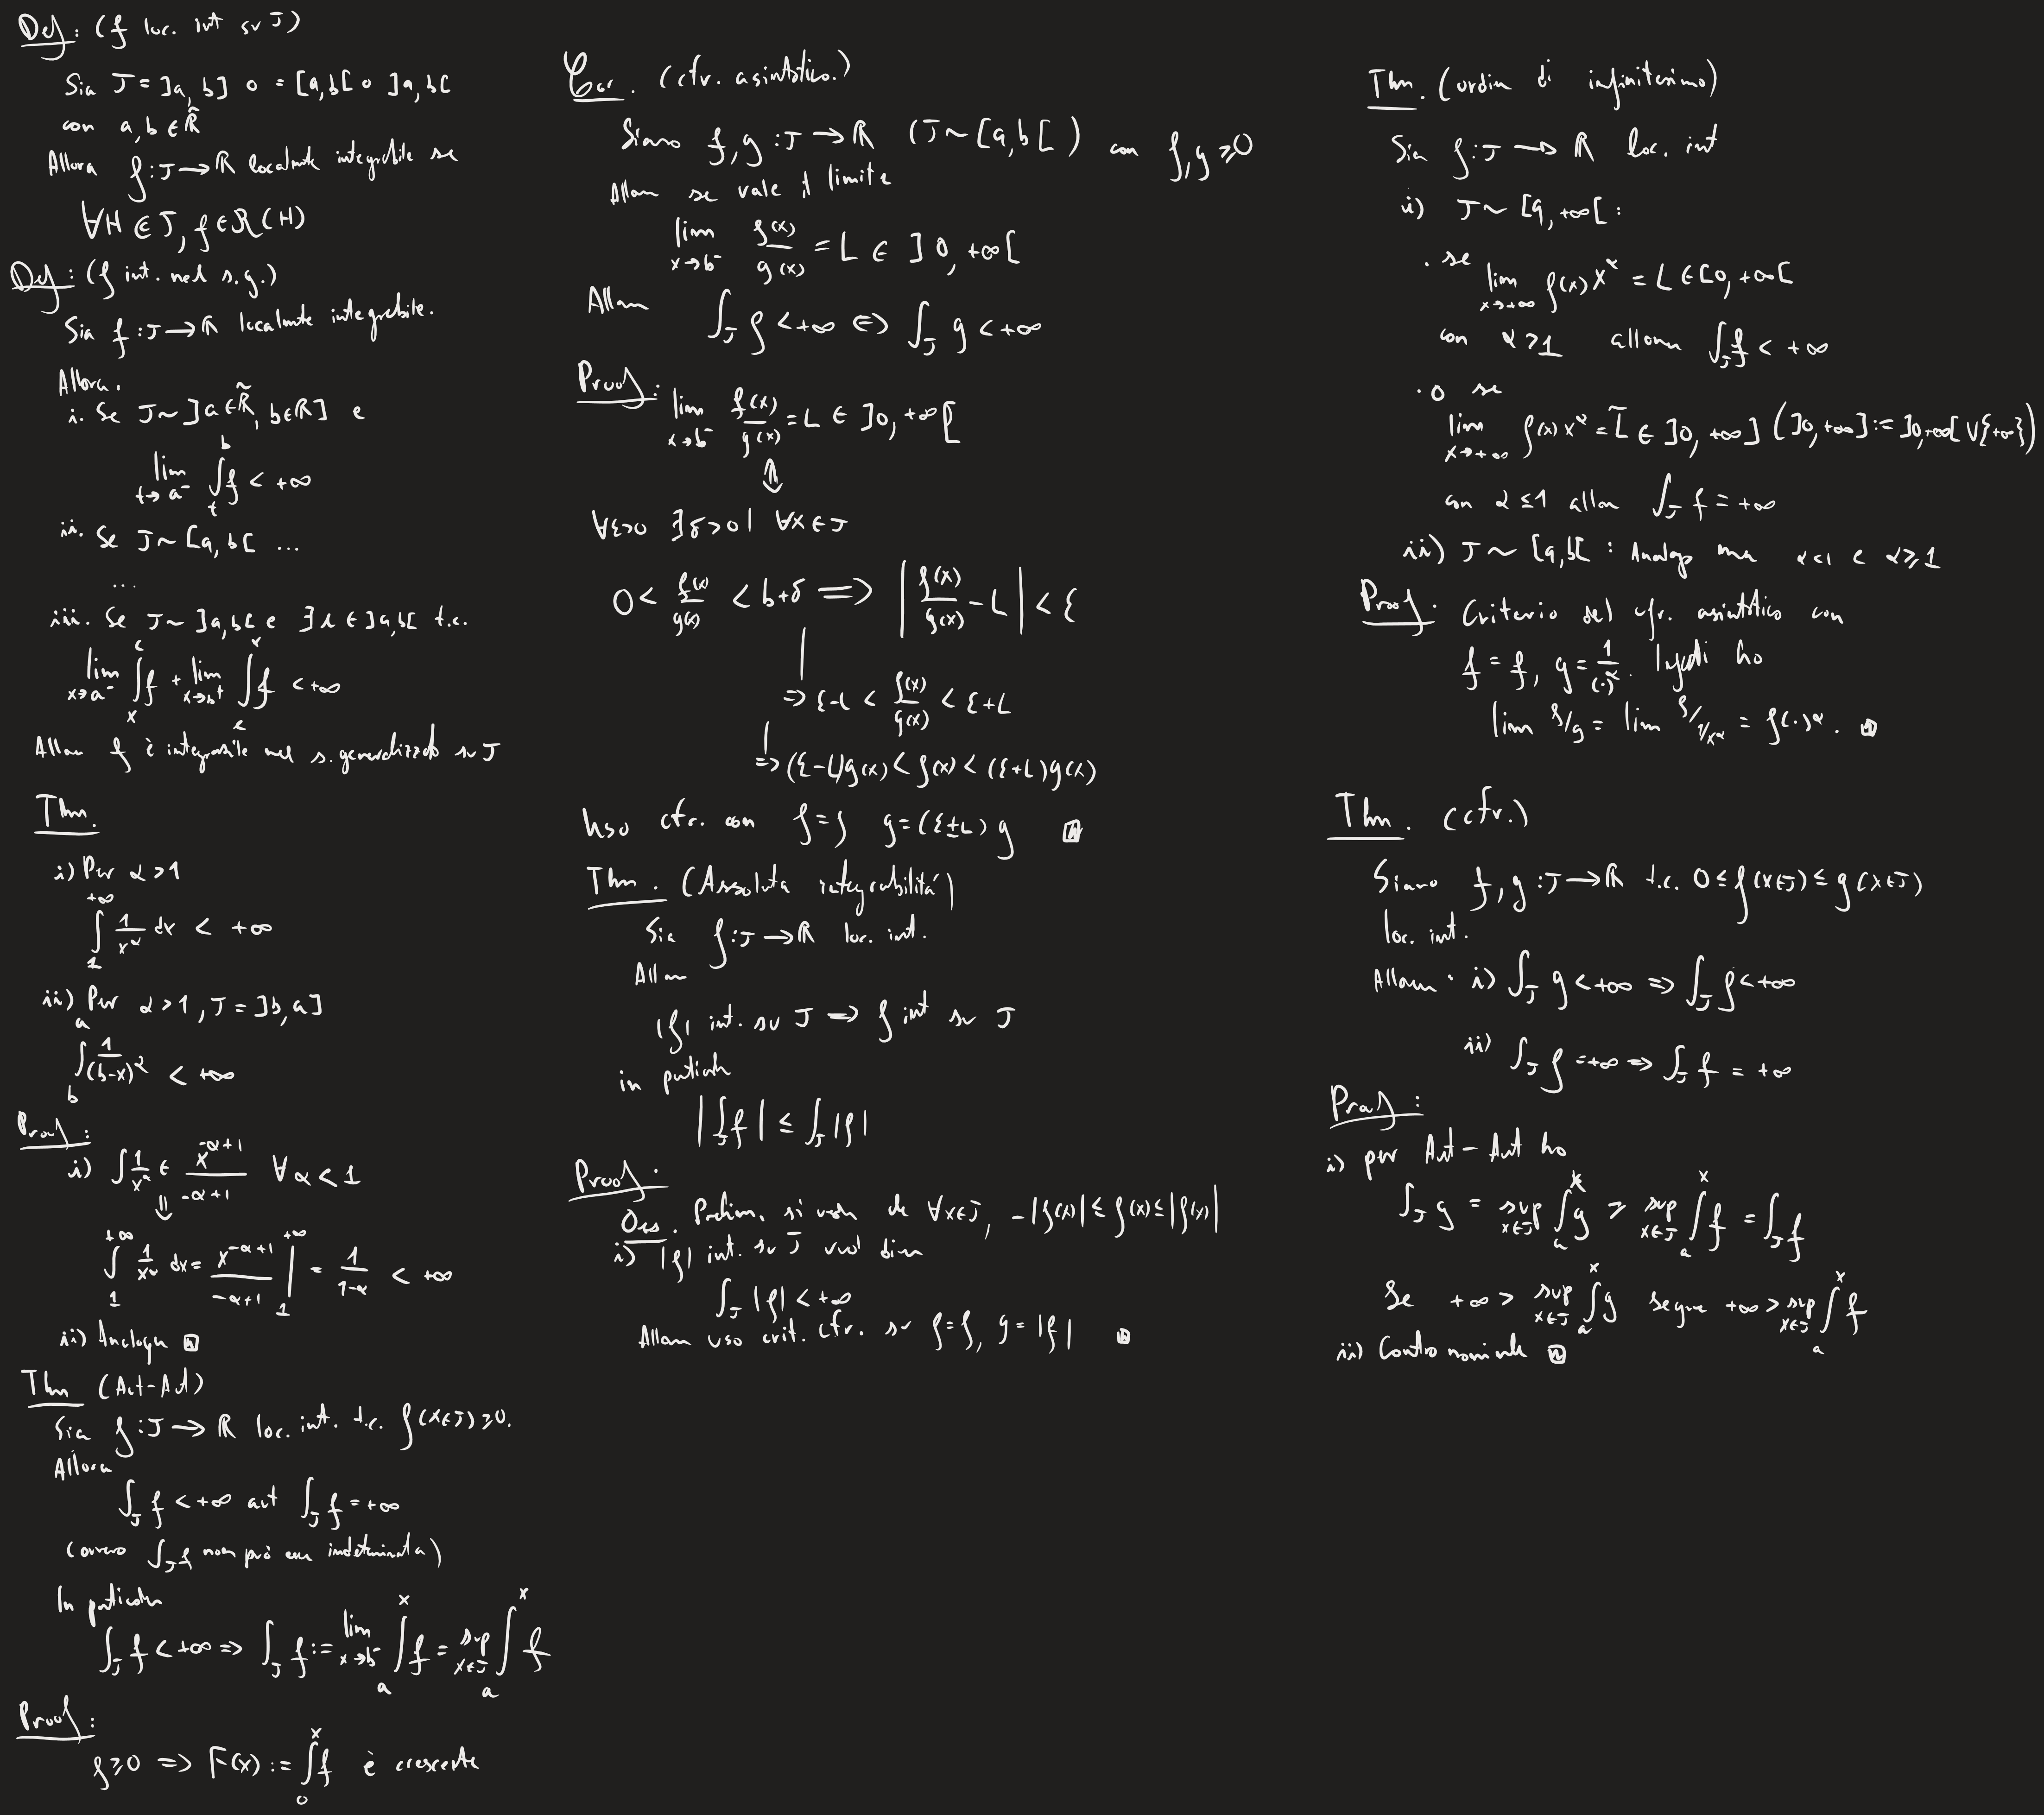 Def: (f loc. int su J)
Sia J = ]a, b] o = [a, b[ o ]a, b[
con a, b ∈ R̃
Allora f: J → ℝ localmte integrabile se
∀H ⋐ J, f ∈ R(H)
Def: (f int. nel s.g.)
Sia f: J → ℝ localmte integrabile.
Allora.
i. Se J ~ ]a ∈ R̃, b ∈ ℝ] e
lim_{t→a⁻} ∫_t^b f < +∞
ii. Se J ~ [a, b[ ...
...
iii. Se J ~ ]a, b[ e ∃ c ∈ ]a, b[ t.c.
lim_{x→a⁻} ∫_x^c f + lim_{x→b⁺} ∫_c^x f < +∞
Allora f è integrabile nel s. generalizzato su J
Thm.
i) Per α > 1
∫_1^{+∞} 1/x^α dx < +∞
ii) Per α > 1, J = ]b, a]
∫_b^a 1/(b-x)^α < +∞
Proof:
i) ∫ 1/x^α ∈ x^{-α+1}/(-α+1) ∀ α < 1
⇓
∫_1^{+∞} 1/x^α dx = x^{-α+1}/(-α+1) |_1^{+∞} = 1/(1-α) < +∞
ii) Analoga
Thm (Aut-Aut)
Sia f: J → ℝ loc. int. t.c. f(x∈J) ≥ 0.
Allora
∫_J f < +∞ aut ∫_J f = +∞
(ovvero ∫_J f non può ess indeterminata)
In particolar
∫_J f < +∞ ⇒ ∫_J f := lim_{x→b⁻} ∫_a^x f = sup_{x∈J} ∫_a^x f
Proof:
f ≥ 0 ⇒ F(x) := ∫_0^x f è crescente
Cor. (cfr. asintotico.)
Siano f, g: J → ℝ (J ~ [a, b[ ) con f, g ≥ 0
Allora se vale il limite
lim_{x→b⁻} f(x)/g(x) = L ∈ ]0, +∞[
Allora
∫_J f < +∞ ⇔ ∫_J g < +∞
Proof:
lim_{x→b⁻} f(x)/g(x) = L ∈ ]0, +∞[
⇕
∀ε>0 ∃δ>0 | ∀x∈J
0 < f(x)/g(x) < b+δ ⟹ | f(x)/g(x) - L | < ε
⇒ ε-L < f(x)/g(x) < ε+L
⇒ (ε-L)g(x) < f(x) < (ε+L)g(x)
Uso cfr. con f = f g = (ε±L) g
Thm. (Assoluta integrabilità)
Sia f: J → ℝ loc. int.
Allora
|f| int. su J ⟹ f int su J
in particolar
| ∫_J f | ≤ ∫_J |f|
Proof.
Oss. Prelim. si vede che ∀x∈J, -|f(x)| ≤ f(x) ≤ |f(x)|
i) |f| int. su J vuol dire
∫_J |f| < +∞
Allora uso crit. cfr. su f = f, g = |f|
Thm. (ordin di infinitesimo)
Sia f: J → ℝ loc. int
i) J ~ [a, +∞[ :
· se lim_{x→+∞} f(x) x^α = L ∈ [0, +∞[
con α > 1 allora ∫_J f < +∞
· o se
lim_{x→+∞} f(x) x^α = L̃ ∈ ]0, +∞] (]0, +∞] := ]0, +∞[ ∪ {+∞})
con α ≤ 1 allora ∫_J f = +∞
ii) J ~ [a, b[ : Analogo ma α<1 e α ≥ 1
Proof. Criterio del cfr. asintotico con
f = f, g = 1/(·)^α. ho
lim f/g = lim f/1/x^α = f(·)^α.
Thm. (cfr.)
Siano f, g: J → ℝ t.c. 0 ≤ f(x∈J) ≤ g(x∈J)
loc. int.
Allora. i) ∫_J g < +∞ ⇒ ∫_J f < +∞
ii) ∫_J g = +∞ ⇒ ∫_J f = +∞
Proof:
i) per Aut-Aut ho
∫_J g = sup_{x∈J} ∫_a^x g ≥ sup_{x∈J} ∫_a^x f = ∫_J f
Se +∞ > sup_{x∈J} ∫_a^x g segue +∞ > sup_{x∈J} ∫_a^x f
ii) Contronominale